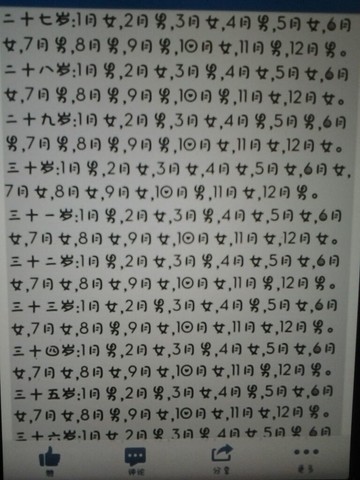 二十七岁:1月女,2月男,3月女,4月男,5月女,6月
女,7月男,8月男,9月男,10月女,11月男,12月男。
二十八岁:1月男,2月女,3月男,4月女,5月女,6月
女,7月男,8月男,9月男,10月男,11月女,12月女。
二十九岁:1月女,2月男,3月女,4月男,5月男,6月
男,7月男,8月男,9月男,10月男,11月女,12月女。
三十岁:1月男,2月女,3月女,4月女,5月女,6月女,
7月女,8月女,9月女,10月男,11月男,12月男。
三十一岁:1月男,2月女,3月男,4月女,5月女,6月
女,7月女,8月女,9月女,10月女,11月女,12月女。
三十二岁:1月男,2月女,3月男,4月女,5月女,6月
女,7月女,8月女,9月女,10月女,11月男,12月男。
三十三岁:1月女,2月男,3月女,4月男,5月女,6月
女,7月女,8月男,9月女,10月女,11月女,12月男。
三十四岁:1月男,2月女,3月男,4月女,5月女,6月
女,7月女,8月女,9月女,10月女,11月男,12月男。
三十五岁:1月男,2月男,3月女,4月男,5月女,6月
女,7月女,8月男,9月女,10月女,11月男,12月男。
三十六岁:1月女,2月男,3月男,4月男,5月男,6月
赞 评论 分享 更多